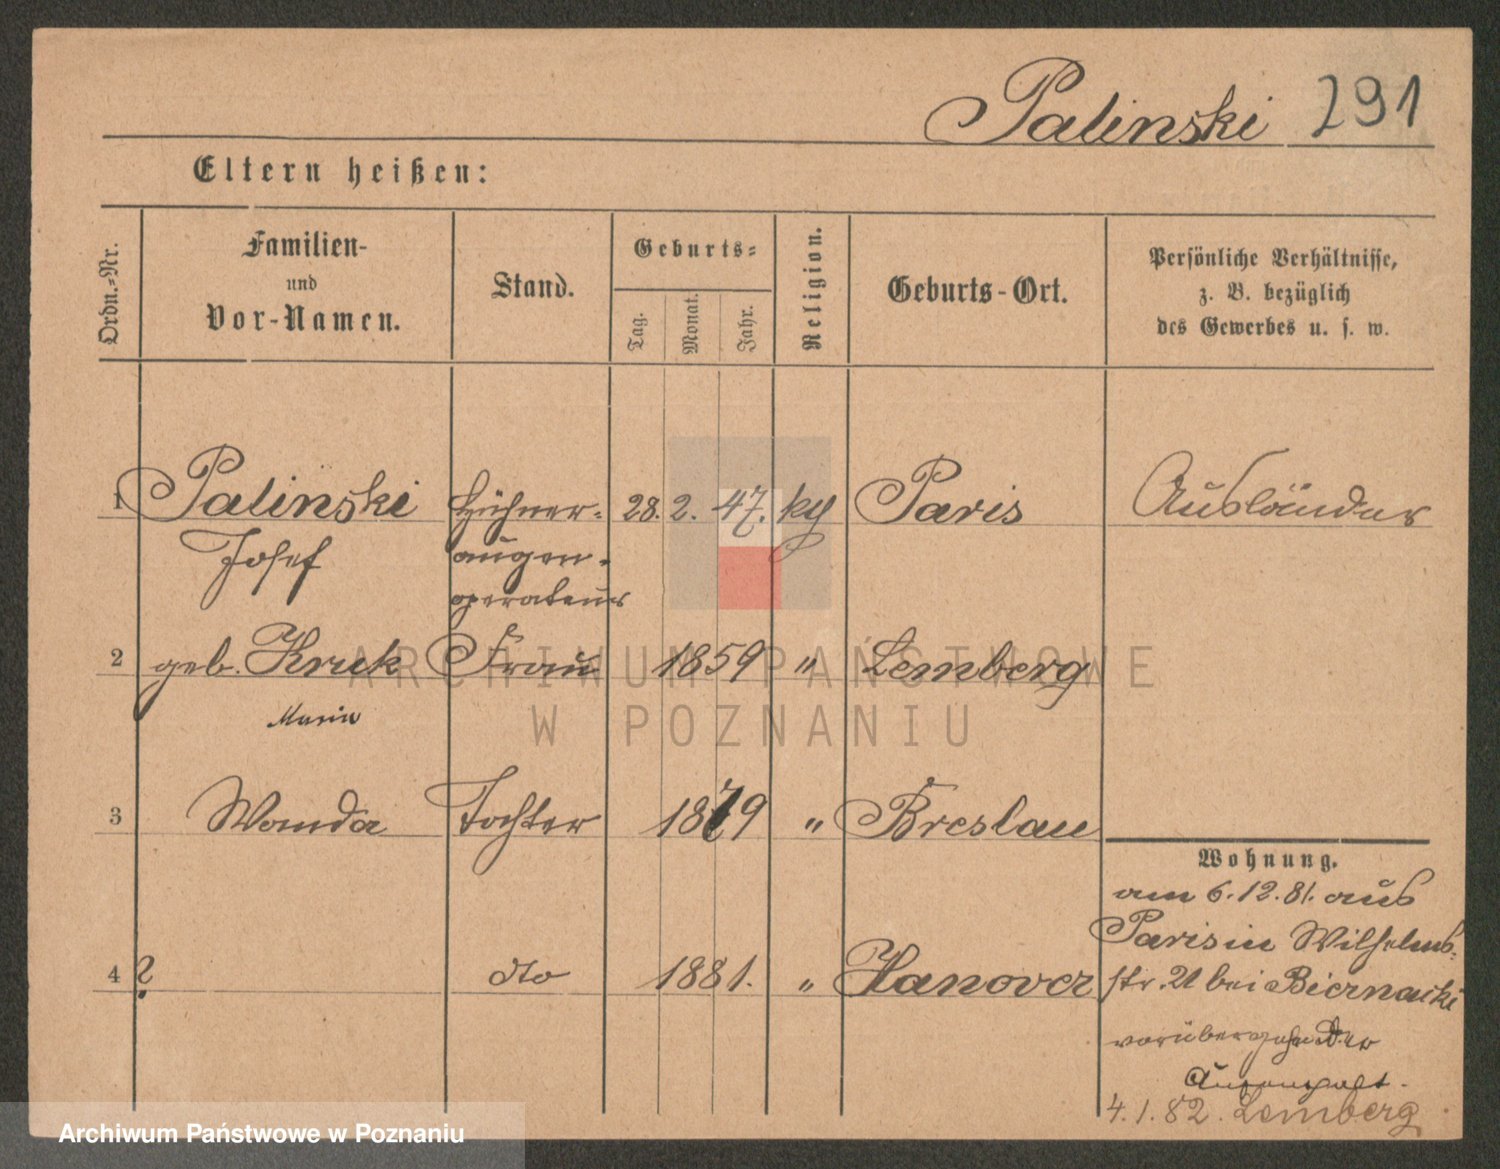 Palinski 291
Eltern heißen:
Ordn.-Nr.
Familien-
und
Vor-Namen.
Stand.
Geburts-
Tag.
Monat.
Jahr.
Religion.
Geburts-Ort.
Persönliche Verhältnisse,
z. B. bezüglich
des Gewerbes u. s. w.
1 Palinski Hühner- 28. 2. 47. kth Paris Ausländer
Josef augen-
operateur
2 geb. Kruk Frau 1859 " Lemberg
Maria
3 Wanda Tochter 1879 " Breslau
Wohnung.
am 6.12.81. aus
Paris in Wilhelms-
str. 21 bei Biernacki
4 ? dto 1881. " Hanover
vorübergehender
Aufenthalt.
4.1.82. Lemberg
ARCHIWUM PAŃSTWOWE
W POZNANIU
Archiwum Państwowe w Poznaniu